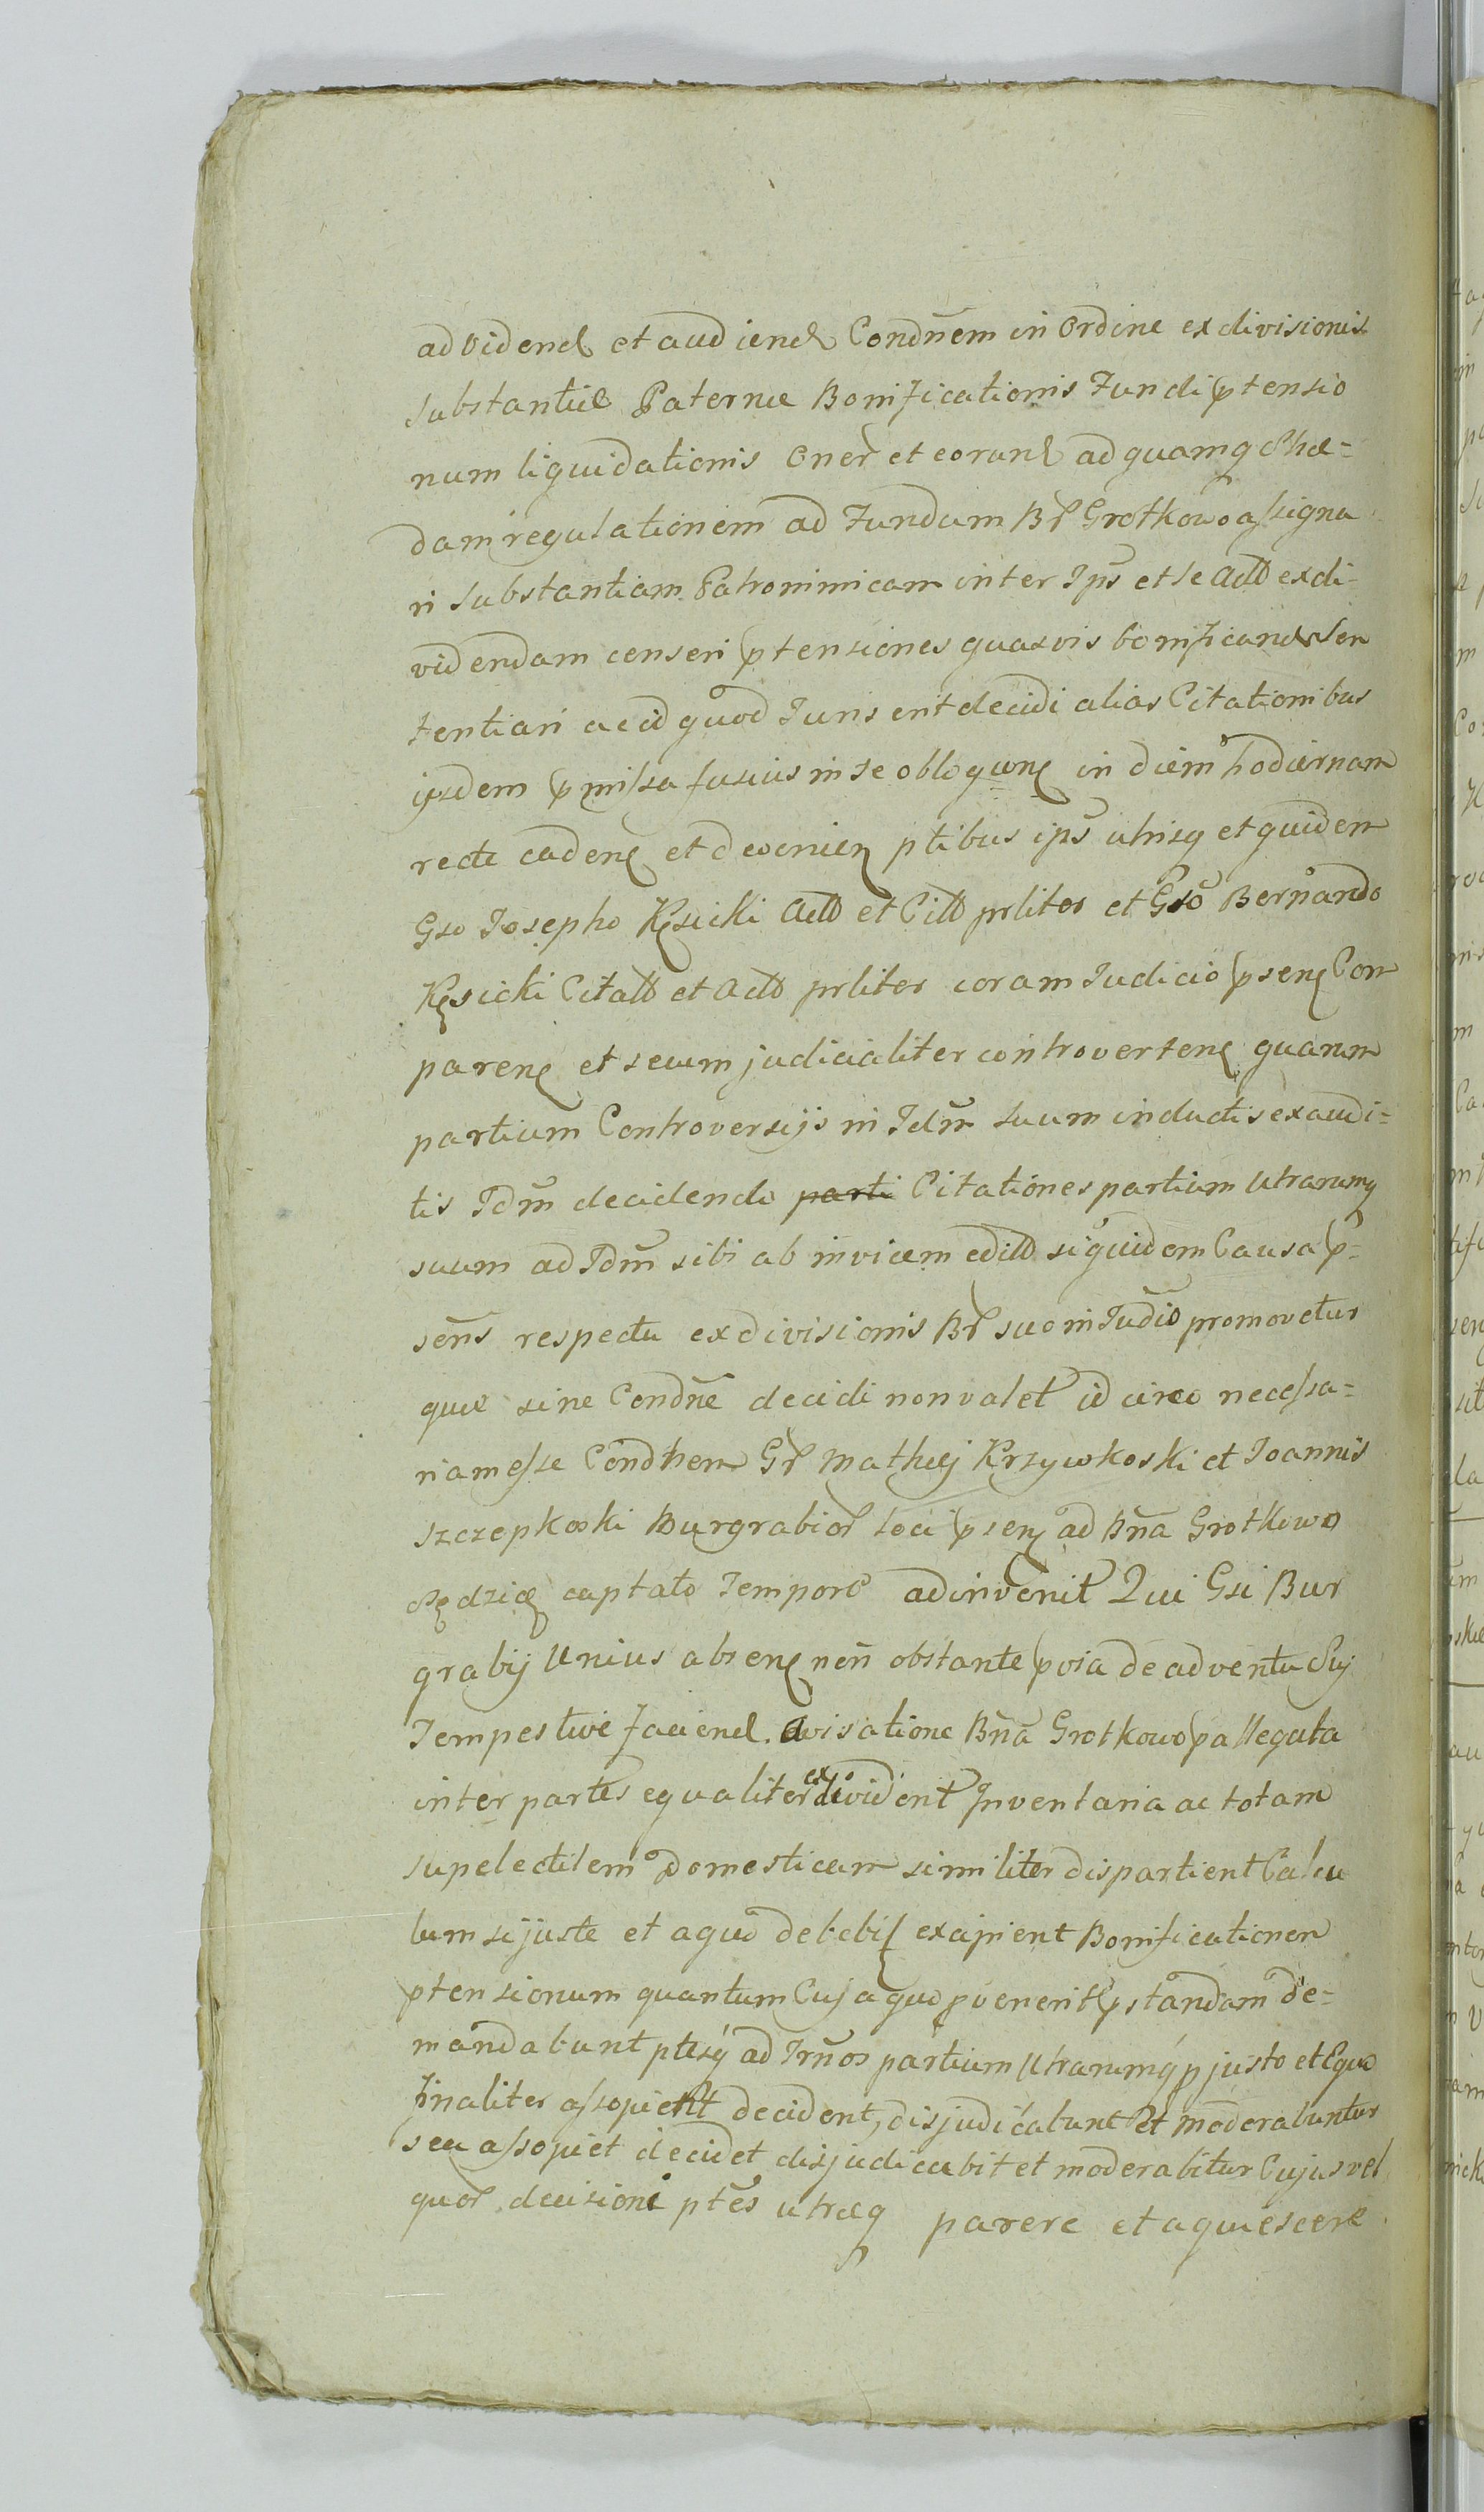 ad videnđ et audienđ Condnem in Ordine exdivisionis
substantiæ Paternæ Bonificationis Fundi ptensio
num liquidationis Oner et eorunđ ad quamq Shæ=
dam regulationem ad Fundum Br Grotkowo assigna
ri substantiam Patronimicam inter Ips et se Actt exdi-
videndam censeri ptensiones quasvis bonificand Sen
tentiari ac id quod Juris erit decidi alias Citationibus
ijsdem pmissa fusius in se obloquen in diem hodiernam
recte caden et devenien ptibus ips utrisq et quidem
Gso Josepho Kęsicki Actt et Citt prliter et Gso Bernardo
Kęsicki Citatt et Actt prliter coram Iudicio psen Com
paren et secum judicialiter controverten quarum
partium Controversijs in Idm suum inductis exaudi=
tis Idm decidendo parti Citationes partium Utrarumq
suum ad Idm sibi ab invicem editt siquidem Causa p=
sens respectu exdivisionis Br suo in Iudio promovetur
quæ sine Condne decidi non valet id circo necessa=
riam esse Condnem Gr Mathej Krzywkoski et Joannis
Szczepkoski Burgrabior Loci psen ad Bna Grotkowo
captato Tempore adinvenit Qui Gsi Bur
grabij Unius absen non obstante pvia de adventu Suj
Tempestive faciend. avisatione Bna Grotkowo pallegata
inter partes equaliter exdivident Inventaria ac totam
supelectilem domesticam similiter dispartient Calcu
lum si juste et aquo debebit excipient Bonificationem
ptensionum quantum Cuj aquo pvenerit pstandam de=
mandabunt ptesq ad Irnos partium Utrarumq p justo et Equo
finaliter assopient decident, disjudicabunt et moderabuntur
seu assopiet decidet disjudicabit et moderabitur Cujus vel
quor decisioni ptes utræq parere et aquiescere